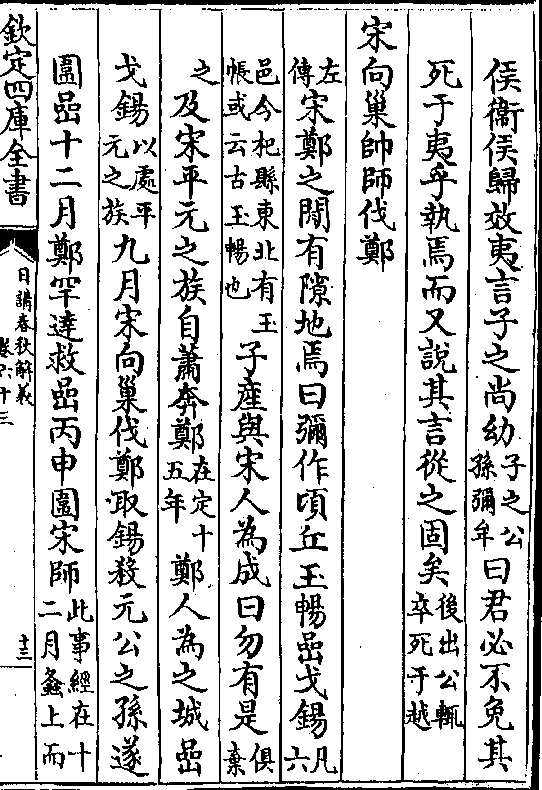 侯衞侯歸效夷言子之尚幼子之公孫彌牟曰君必不免其
死于夷乎執焉而又說其言從之固矣後出公輒卒死于越
宋向巢帥師伐鄭
左傳宋鄭之閒有隙地焉曰彌作頃丘玉暢嵒戈錫凡六
邑今杞縣東北有玉帳或云古玉暢也子產與宋人為成曰勿有是俱棄
之及宋平元之族自蕭奔鄭在定十五年鄭人為之城嵒
戈錫以處平元之族九月宋向巢伐鄭取錫殺元公之孫遂
圍嵒十二月鄭罕達救嵒丙申圍宋師此事經在十二月螽上而
欽定四庫全書
日講春秋解義
卷六十三
十三